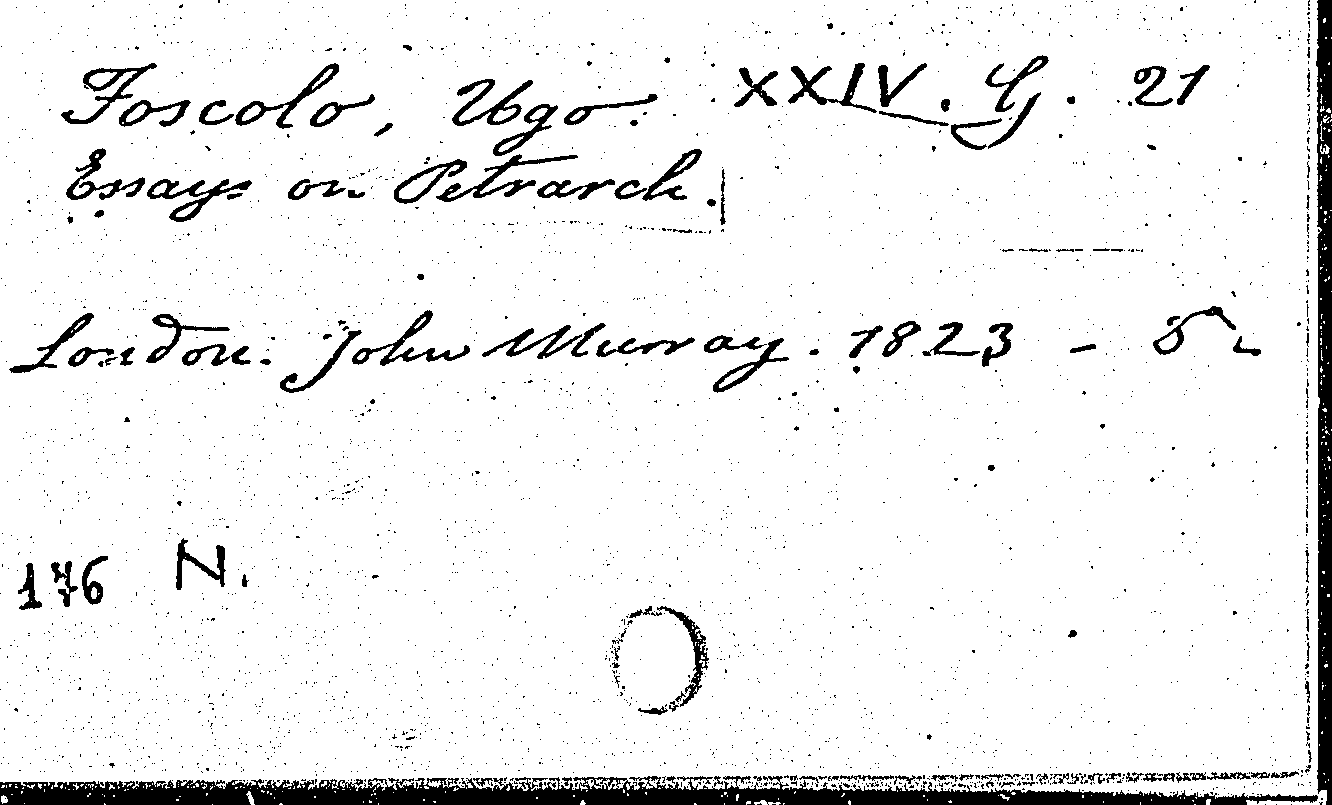 Foscolo, Ugo. XXIV. G. 21
Essays on Petrarch.
London. John Murray. 1823 -
176 N.